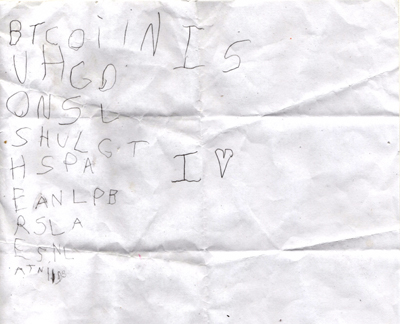 BTCOIIN IS
UHGD
ONSL
SHULGT
HSPA I ♡
EANLPB
RSLA